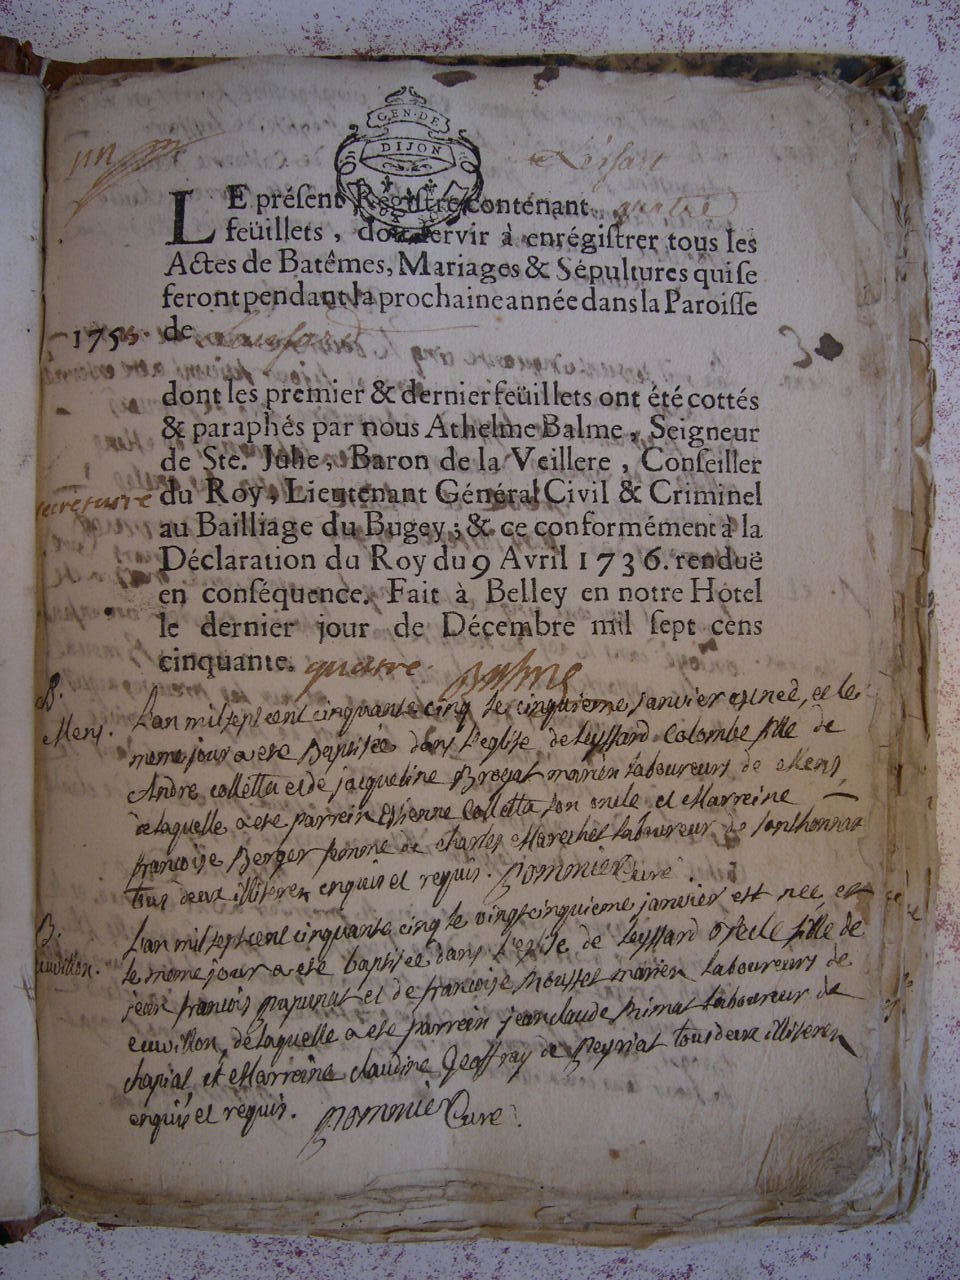 GEN·DE
DIJON
Leissart
LE présent Registre contenant quatre
feüillets, doit servir à enrégistrer tous les
Actes de Batêmes, Mariages & Sépultures qui se
feront pendant la prochaine année dans la Paroisse
175 de
dont les premier & dernier feüillets ont été cottés
& paraphés par nous Athelme Balme, Seigneur
de Ste. Julie, Baron de la Veillere, Conseiller
du Roy, Lieutenant Général Civil & Criminel
au Bailliage du Bugey; & ce conformément à la
Déclaration du Roy du 9 Avril 1736. renduë
en conséquence. Fait à Belley en notre Hôtel
le dernier jour de Décembre mil sept cens
cinquante. quatre. Balme
B.
Mens. L'an mil sept cent cinquante cinq le cinquieme janvier est née, et le
meme jour a ete Baptisée dans l'eglise de leyssard Colombe fille de
Andre colletta et de jacqueline Brogat mariés laboureurs de Mens,
de laquelle a ete parrein Etienne Colletta son oncle et Marreine
francoise Berger femme de charles Marechel laboureur de sonthonnax
tous deux illiterez enquis et requis. pommier Curé.
B.
L'an mil sept cent cinquante cinq le vingt cinquieme janvier est nee, et
le meme jour a ete baptisée dans l'eglise de leyssard fille de
jean francois papunat et de francoise mousset mariez laboureurs de
euvillon, de laquelle a ete parrein jean claude primat laboureur de
chapiat et Marreine claudine Geoffray de peyriat tous deux illiterez
enquis et requis. pommier Curé.